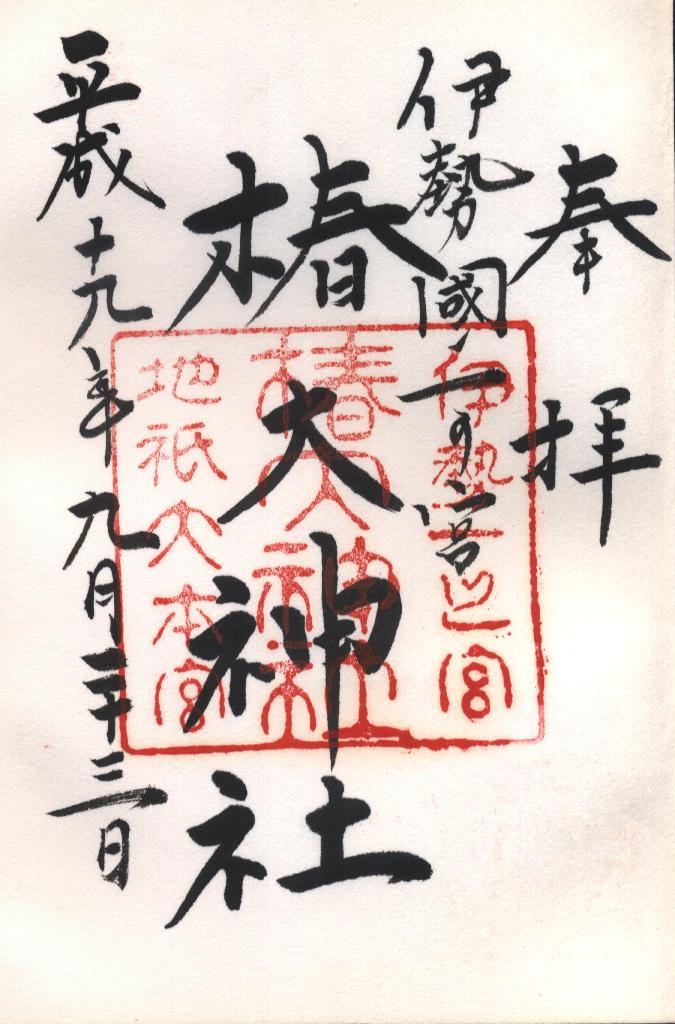 奉拝
伊勢國一の宮
椿大神社
平成十九年九月二十三日
伊勢一之宮
椿大神社
地祇大本宮